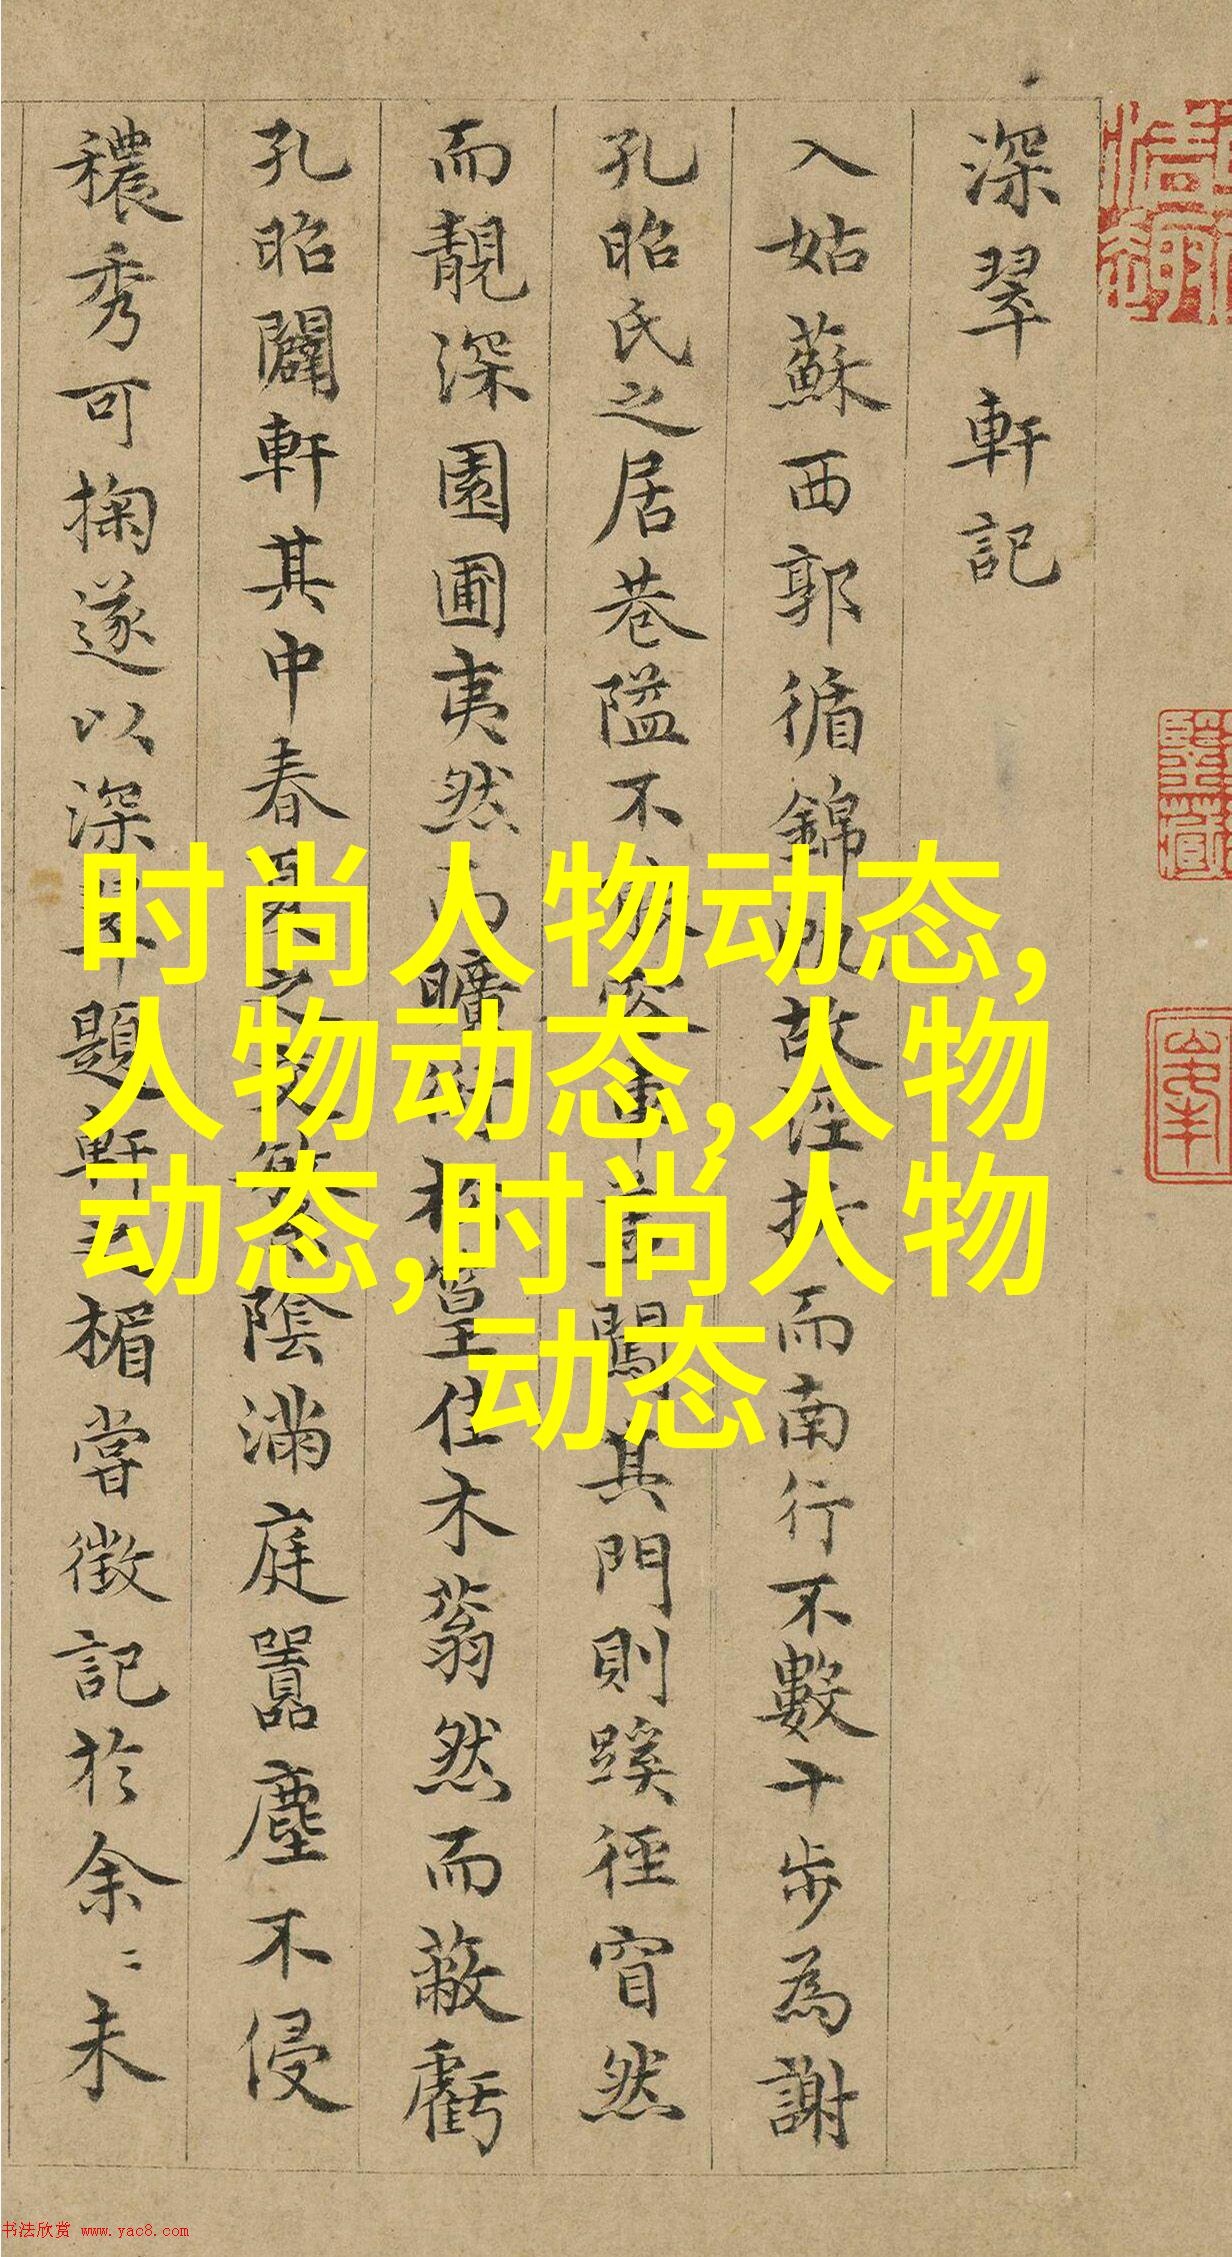 深翠軒記
入姑蘇西郭循錦帆故徑折而南行不數十步為謝
孔昭氏之居巷隘不車闖其門則蹊徑窅然
而靚深園圃夷然而曠樹松篁佳木蓊然而蔽虧
孔昭闢軒其中春夏之交繁陰滿庭囂塵不侵
穠秀可掬遂以深翠題軒楣嘗徵記於余〻未
时尚人物动态,
人物动态,人物
动态,时尚人物
动态
书法欣赏 www.yac8.com